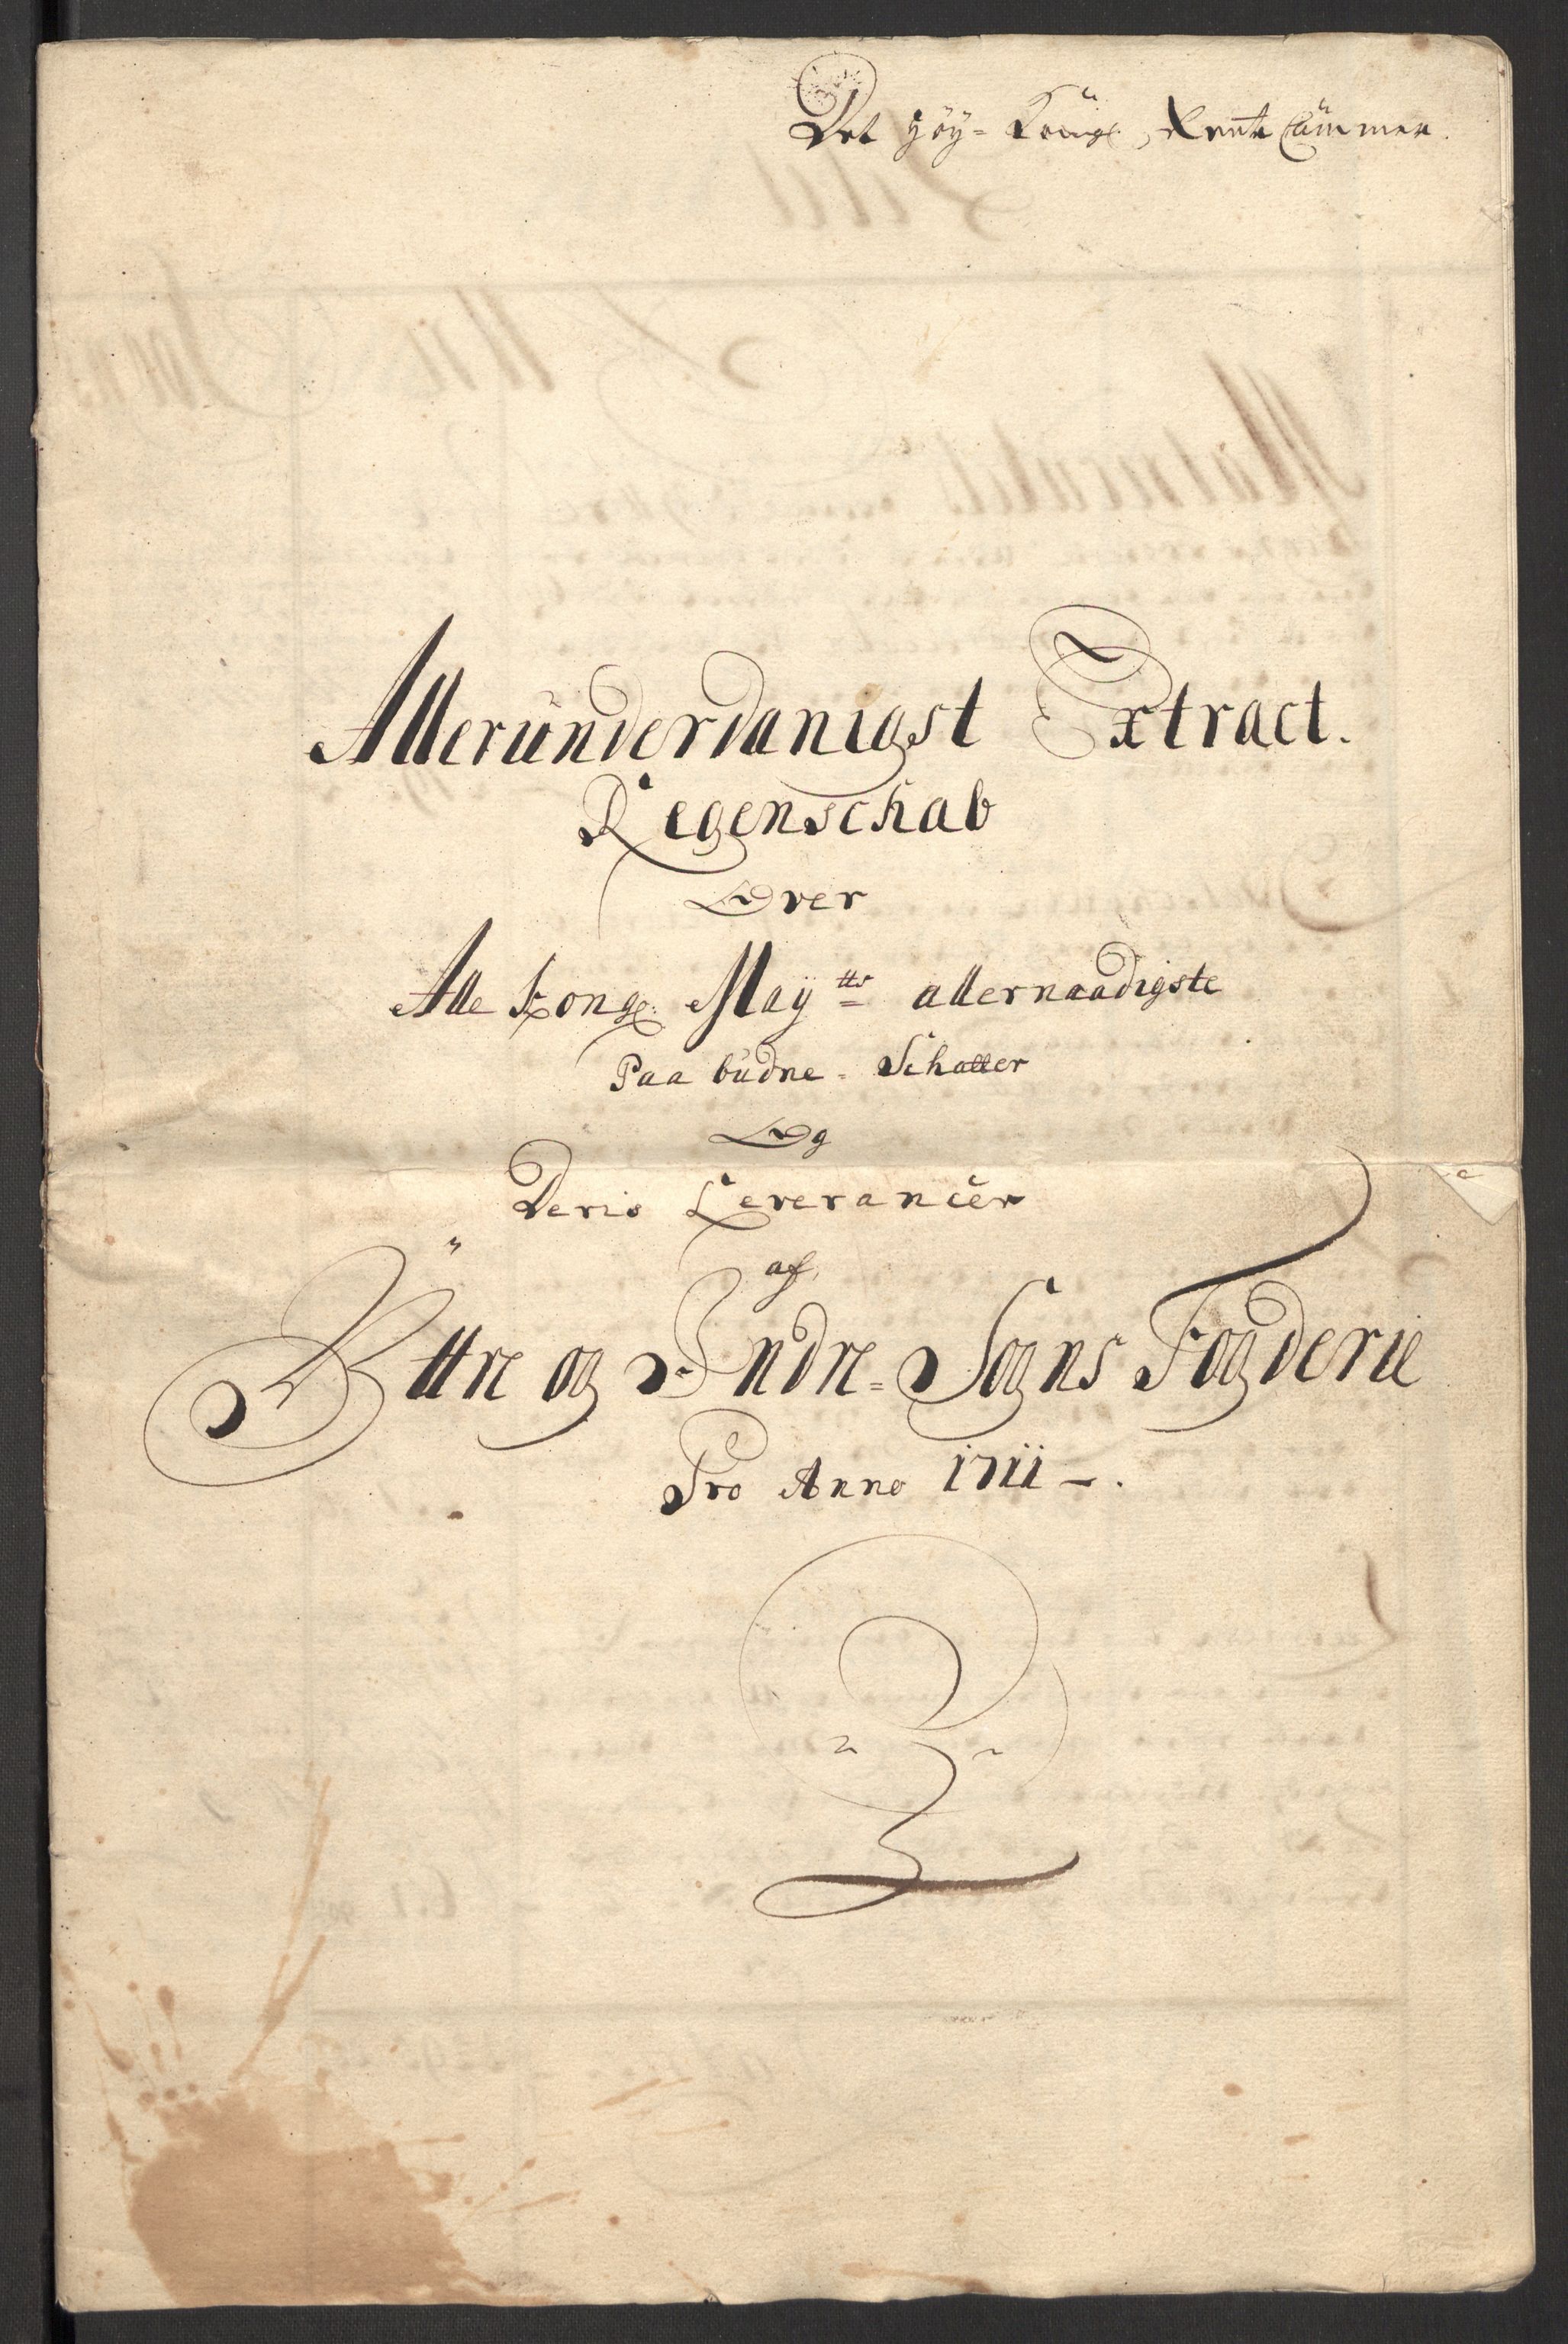 Det Höy- Kongl. Rente Cammer.
Alleründerdanigst Extract.
Regenschab
Over
Alle Kongl: Maÿtts allernaadigste
Paa büdne- Schatter
Og
Deris Leverancer
af
Ÿttre og Indre- Sogns Fogderie
Pro Anno 1711 -.